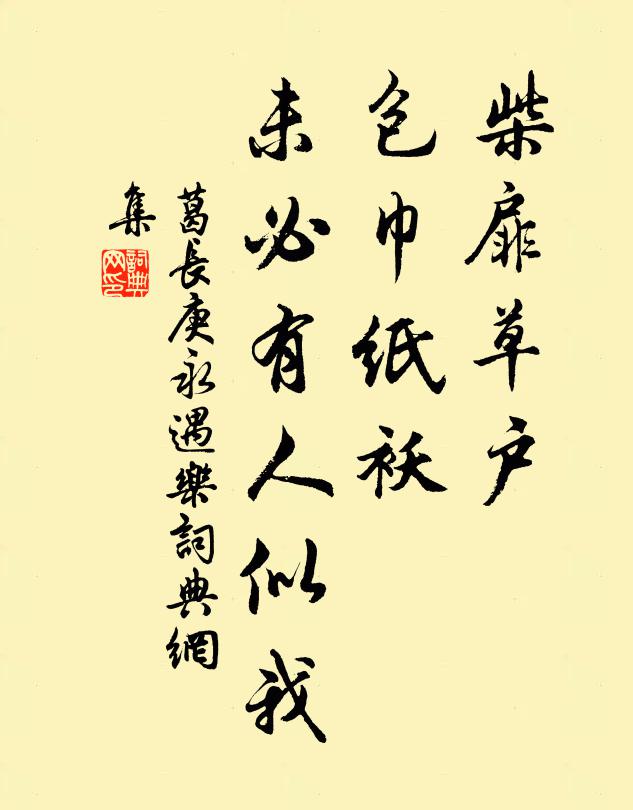 柴扉草户
包巾纸袄
未必有人似我
葛長庚永遇樂詞典網
集
詞典
网印